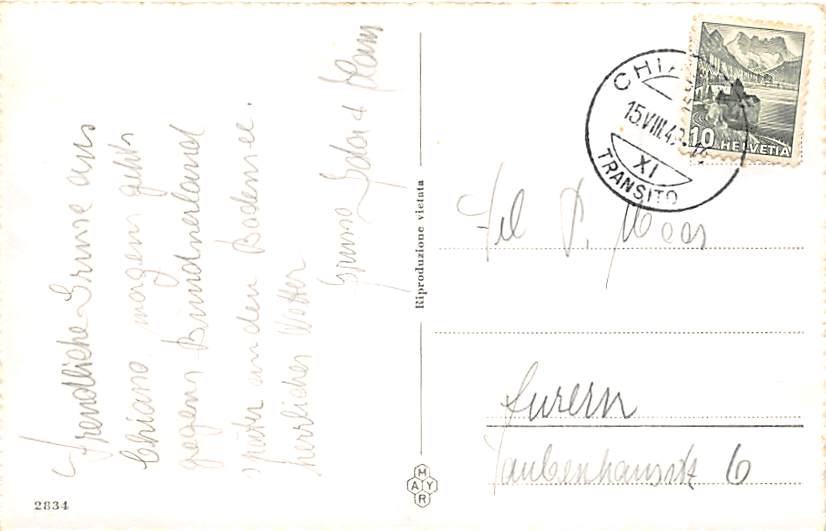 Freudliche Grüsse aus
Chiasso morgen gehts
gegens Bündnerland
später an den Bodensee.
herrliches Wetter
Gruss
2834
Riproduzione vietata
MAYR
CHIA
15.VIII.4
XI
TRANSITO
10 HELVETIA
Frl P.
Luzern
Taubenhausstr 6